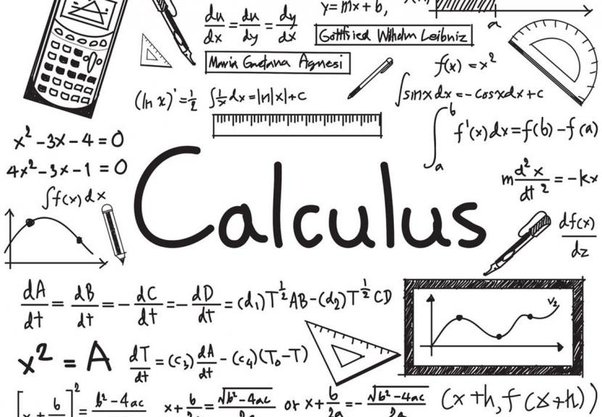 y=mx+b,
du/dx = du/dy = dy/dx
Gottfried Wilhelm Leibniz
a
Maria Gaetana Agnesi
f(x) = x²
(ln x)' = 1/2
∫1/x dx = ln|x|+c
∫sinx dx = -cosxdx+c
∫_a^b f'(x)dx = f(b) - f(a)
x² - 3x - 4 = 0
4x² - 3x - 1 = 0
m d²x/dt² = -kx
∫f(x) dx
Calculus
df(x)/dz
dA/dt = dB/dt = -dC/dt = -dD/dt = (d₁)T^½ AB - (d₂)T^½ CD
V₂
x² = A
dT/dt = (c₃) dA/dt - (c₄)(T₀ - T)
[x + b/]² = b² - 4ac
x + b/2a = √b² - 4ac or x + b/2a = - √b² - 4ac
(x+h, f(x+h))